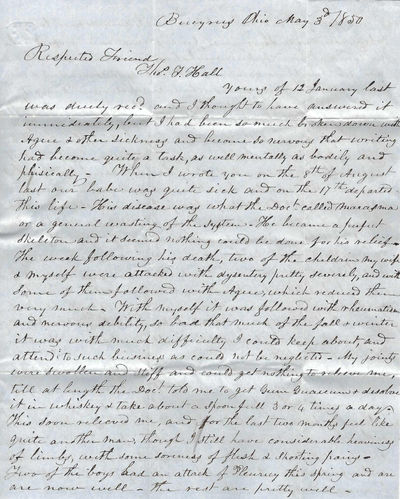 Bucyrus Ohio May 3d / 1850
Respected Friend
Thos. F. Hall
Yours of 12 January last
was duely recd and I thought to have answerd it
immediately, but I had been so much broken down with
Ague & other sickness and became so nervous that writing
had become quite a task, as well mentally as bodily and
phisically - When I wrote you on the 8th of August
last our babe was quite sick and on the 17th departed
this life - His disease was what the Doct. called Marasma
or a general wasting of the system - He became a perfect
skeleton and it seemed nothing could be done for his relief -
The week following his death, two of the children my wife
& myself were attacked with dysentry pretty severely, and with
some of them followed with Ague, which reduced them
very much - With myself it was followed with rheumatism
and nervous debility, so bad that much of the fall & winter
it was with much difficulty I could keep about, and
attend to such business as could not be neglected - My joints
were swollen and stiff and could get nothing to relieve me,
till at length the Doct. told me to get Gum Guaicum & dissolve
it in whiskey & take about a spoonfull 3 or 4 times a day -
This soon relieved me, and for the last two months feel like
quite another man, though I still have considerable heaviness
of limbs, with some soreness of flesh & shooting pains -
Two of the boys had an attack of Pleurisy this spring and are
are now well - the rest are pretty well